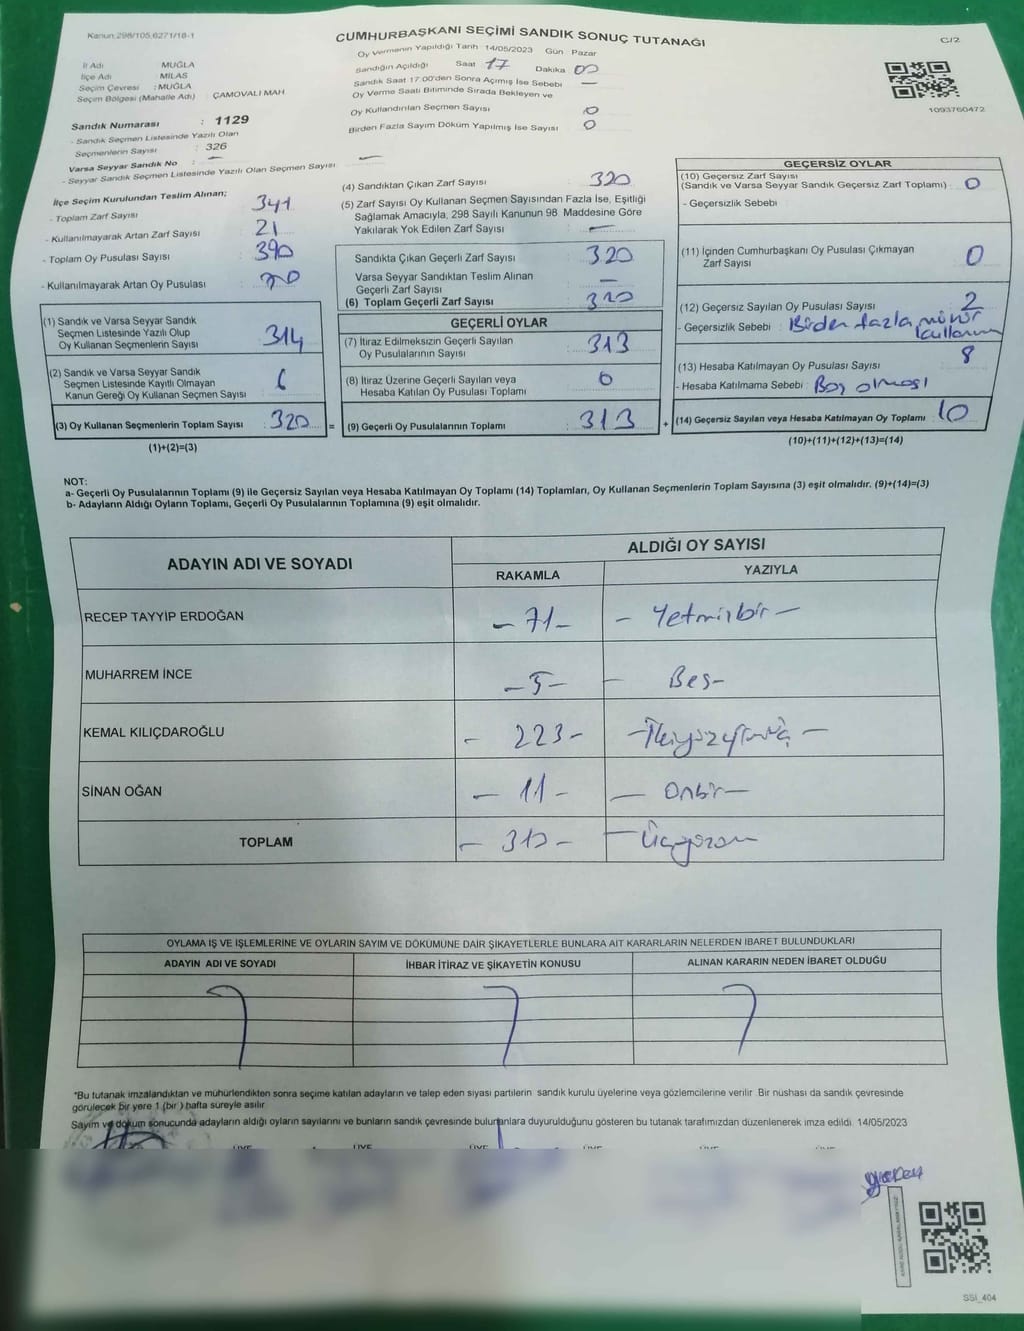 Kanun 298/105,6271/18-1
CUMHURBAŞKANI SEÇİMİ SANDIK SONUÇ TUTANAĞI
C/2
Oy Vermenin Yapıldığı Tarih 14/05/2023 Gün Pazar
Sandığın Açıldığı Saat 17 Dakika 00
Sandık Saat 17:00'den Sonra Açılmış İse Sebebi —
Oy Verme Saati Bitiminde Sırada Bekleyen ve
Oy Kullandırılan Seçmen Sayısı 0
Birden Fazla Sayım Döküm Yapılmış İse Sayısı 0
1093760472
İl Adı MUĞLA
İlçe Adı MİLAS
Seçim Çevresi : MUĞLA
Seçim Bölgesi (Mahalle Adı) ÇAMOVALI MAH
Sandık Numarası : 1129
- Sandık Seçmen Listesinde Yazılı Olan
Seçmenlerin Sayısı : 326
Varsa Seyyar Sandık No : —
- Seyyar Sandık Seçmen Listesinde Yazılı Olan Seçmen Sayısı —
İlçe Seçim Kurulundan Teslim Alınan;
- Toplam Zarf Sayısı 341
- Kullanılmayarak Artan Zarf Sayısı 21
- Toplam Oy Pusulası Sayısı 390
- Kullanılmayarak Artan Oy Pusulası
(1) Sandık ve Varsa Seyyar Sandık
Seçmen Listesinde Yazılı Olup
Oy Kullanan Seçmenlerin Sayısı 314
(2) Sandık ve Varsa Seyyar Sandık
Seçmen Listesinde Kayıtlı Olmayan
Kanun Gereği Oy Kullanan Seçmen Sayısı 6
(3) Oy Kullanan Seçmenlerin Toplam Sayısı 320 =
(1)+(2)=(3)
(4) Sandıktan Çıkan Zarf Sayısı 320
(5) Zarf Sayısı Oy Kullanan Seçmen Sayısından Fazla İse, Eşitliği
Sağlamak Amacıyla, 298 Sayılı Kanunun 98. Maddesine Göre
Yakılarak Yok Edilen Zarf Sayısı —
Sandıkta Çıkan Geçerli Zarf Sayısı 320
Varsa Seyyar Sandıktan Teslim Alınan
Geçerli Zarf Sayısı —
(6) Toplam Geçerli Zarf Sayısı 320
GEÇERLİ OYLAR
(7) İtiraz Edilmeksizin Geçerli Sayılan
Oy Pusulalarının Sayısı 313
(8) İtiraz Üzerine Geçerli Sayılan veya
Hesaba Katılan Oy Pusulası Toplamı 0
(9) Geçerli Oy Pusulalarının Toplamı : 313 +
GEÇERSİZ OYLAR
(10) Geçersiz Zarf Sayısı
(Sandık ve Varsa Seyyar Sandık Geçersiz Zarf Toplamı) 0
- Geçersizlik Sebebi
(11) İçinden Cumhurbaşkanı Oy Pusulası Çıkmayan
Zarf Sayısı 0
(12) Geçersiz Sayılan Oy Pusulası Sayısı 2
- Geçersizlik Sebebi : Birden fazla mühür
kullanımı
(13) Hesaba Katılmayan Oy Pusulası Sayısı 8
- Hesaba Katılmama Sebebi : Boş olması
(14) Geçersiz Sayılan veya Hesaba Katılmayan Oy Toplamı : 10
(10)+(11)+(12)+(13)=(14)
NOT:
a- Geçerli Oy Pusulalarının Toplamı (9) ile Geçersiz Sayılan veya Hesaba Katılmayan Oy Toplamı (14) Toplamları, Oy Kullanan Seçmenlerin Toplam Sayısına (3) eşit olmalıdır. (9)+(14)=(3)
b- Adayların Aldığı Oyların Toplamı, Geçerli Oy Pusulalarının Toplamına (9) eşit olmalıdır.
ADAYIN ADI VE SOYADI
ALDIĞI OY SAYISI
RAKAMLA YAZIYLA
RECEP TAYYİP ERDOĞAN - 71 - - Yetmişbir -
MUHARREM İNCE - 5 - - Beş -
KEMAL KILIÇDAROĞLU - 223 - - İkiyüzyirmiüç -
SİNAN OĞAN - 11 - - Onbir -
TOPLAM - 310 - - Üçyüzon
OYLAMA İŞ VE İŞLEMLERİNE VE OYLARIN SAYIM VE DÖKÜMÜNE DAİR ŞİKAYETLERLE BUNLARA AİT KARARLARIN NELERDEN İBARET BULUNDUKLARI
ADAYIN ADI VE SOYADI İHBAR İTİRAZ VE ŞİKAYETİN KONUSU ALINAN KARARIN NEDEN İBARET OLDUĞU
*Bu tutanak imzalandıktan ve mühürlendikten sonra seçime katılan adayların ve talep eden siyasi partilerin sandık kurulu üyelerine veya gözlemcilerine verilir. Bir nüshası da sandık çevresinde
görülecek bir yere 1 (bir ) hafta süreyle asılır.
Sayım ve döküm sonucunda adayların aldığı oyların sayılarını ve bunların sandık çevresinde bulunanlara duyurulduğunu gösteren bu tutanak tarafımızdan düzenlenerek imza edildi. 14/05/2023
ÜYE ÜYE ÜYE ÜYE ÜYE ÜYE
SSİ_404